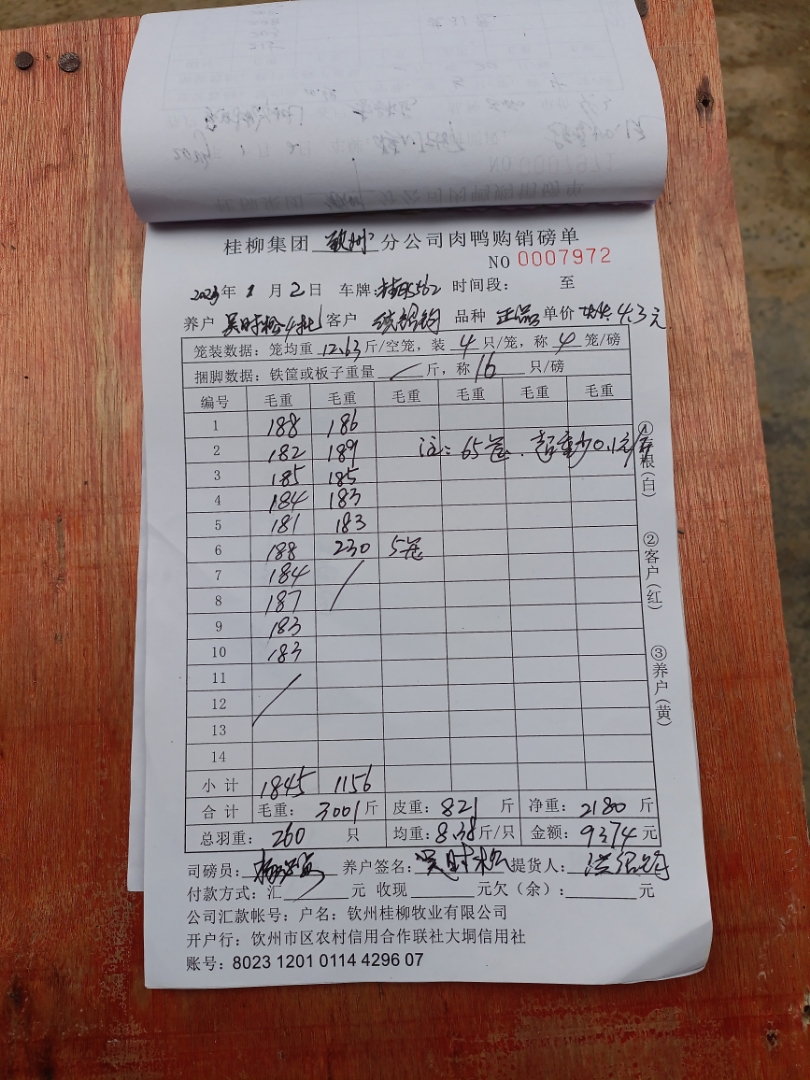 桂柳集团 钦州 分公司肉鸭购销磅单
NO 0007972
2023年 1 月 2 日 车牌: 时间段: 至
养户 吴时松4批 客户 品种 正品 单价 4.3元
笼装数据:笼均重 12.63 斤/空笼,装 4 只/笼,称 4 笼/磅
捆脚数据:铁筐或板子重量 / 斤,称 16 只/磅
编号 毛重 毛重 毛重 毛重 毛重 毛重
1 188 186
2 182 189 注:65笼、超重少0.1元/斤
3 185 185
4 184 183
5 181 183
6 188 230 5笼
7 184 /
8 187
9 183
10 183
11 /
12
13
14
小计 1845 1156
合计 毛重: 3001 斤 皮重: 821 斤 净重: 2180 斤
总羽重: 260 只 均重: 8.38 斤/只 金额: 9374 元
司磅员: 养户签名: 吴时松 提货人:
付款方式:汇 元 收现 元欠(余): 元
公司汇款帐号:户名:钦州桂柳牧业有限公司
开户行:钦州市区农村信用合作联社大垌信用社
账号:8023 1201 0114 4296 07
①存根(白)
②客户(红)
③养户(黄)